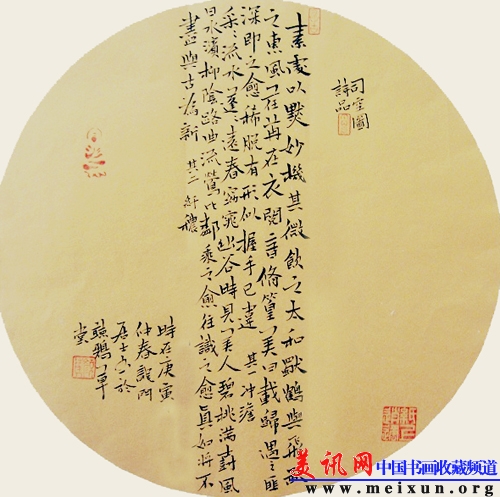 司空圖
詩品
素處以默妙機其微飲之太和獨鶴與飛猶
之惠風荏苒在衣閱音脩篁美曰載歸遇之匪
深即之愈稀脱有形似握手已違 其 冲澹
采〻流水蓬〻遠春窈窕幽谷時見美人碧桃滿樹風
日水濱柳陰路曲流鶯比鄰乘之愈往識之愈真如將不
盡與古為新 其二 纖穠
時在庚寅
仲春
居士書於
草
堂
美讯网 中国书画收藏频道
www.meixun.org